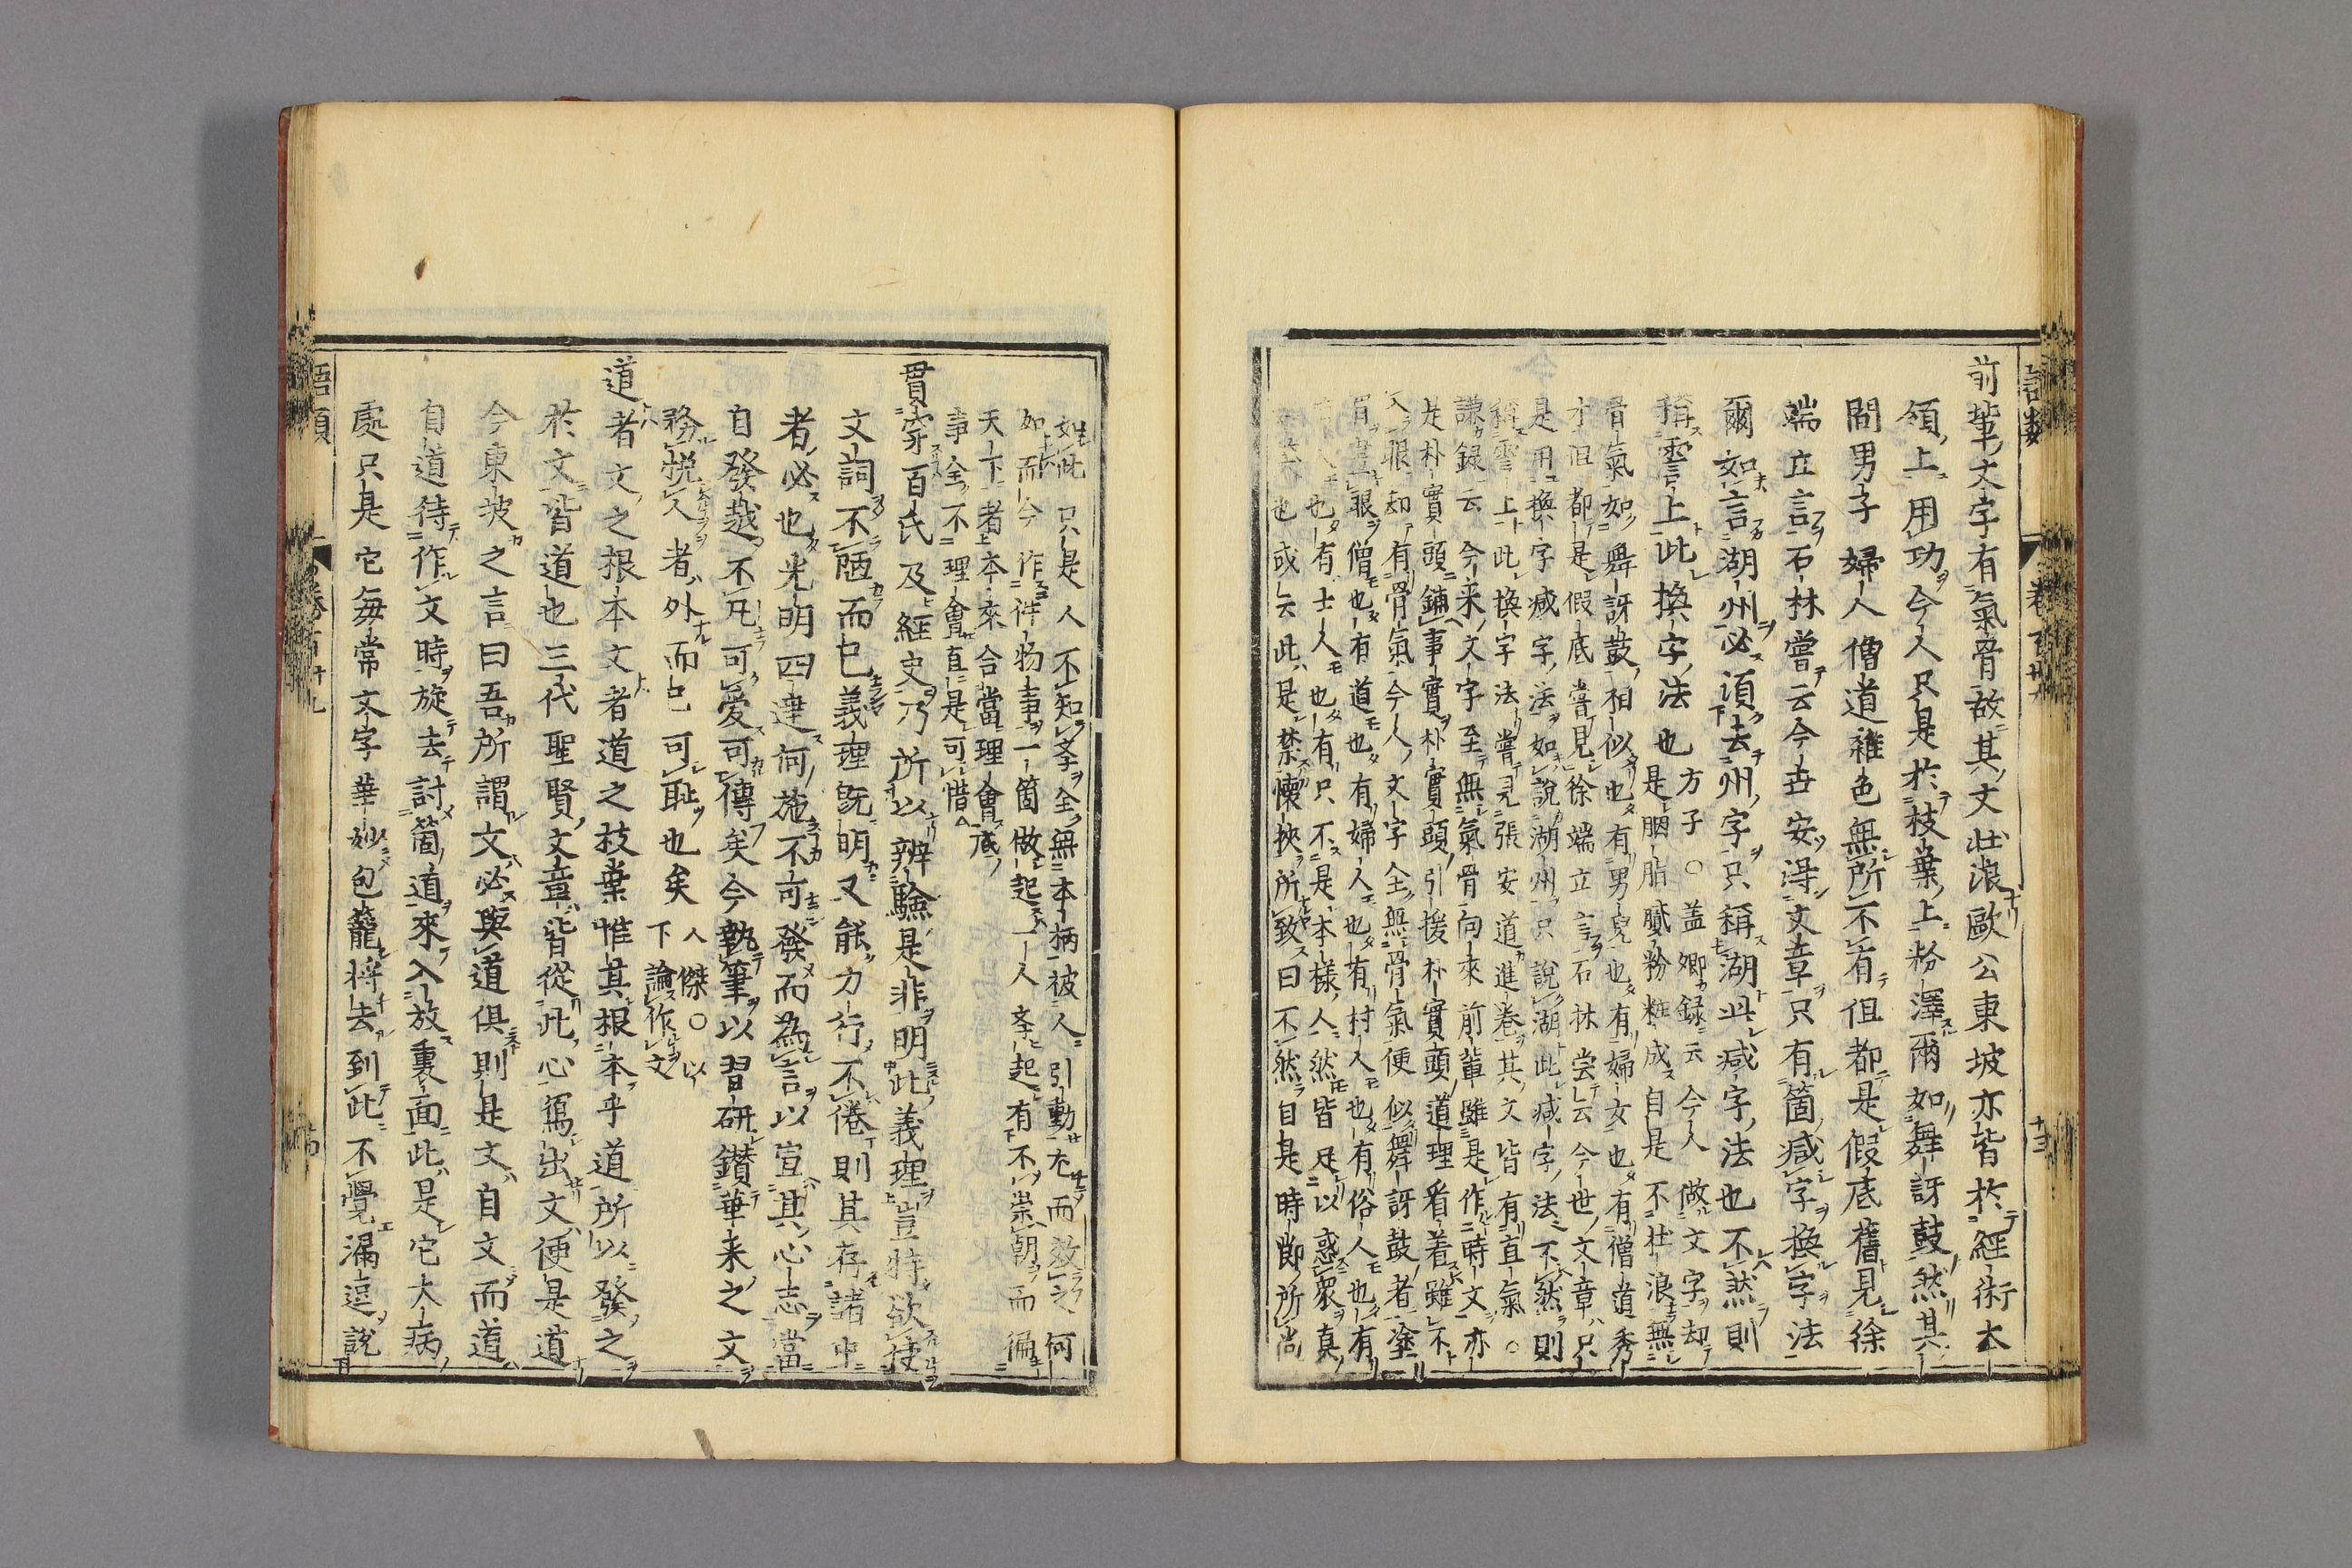 語類　卷百卅九　十三
前輩文字有氣骨故其文壯浪歐公東坡亦皆於經術本
領上用功今人只是於枝葉上粉澤爾如舞訝鼓然其
間男子婦人僧道雜色無所不有但都是假底舊見徐
端立言石林嘗云今世安得文章只有箇減字換字法
爾如言湖州必須去州字只稱湖此減字法也不然則
稱霅上此換字法也
方子○蓋卿録云今人做文字却
是胭脂膩粉粧成自是不壮浪無
骨氣如舞訝鼓相似也有男兒也有婦女也有僧道秀
才但都是假底嘗見徐端立言石林尝云今世文章只
是用換字減字法如說湖州只說湖此減字法不然則
稱霅上此換字法嘗見張安道進卷其文皆有直氣○
謙録云今来文字至無氣骨向來前輩雖是作時文亦
是朴實頭鋪事實朴實頭引援朴實頭道理看着雖不
入眼却有骨氣今人文字全無骨氣便似舞訝鼓者塗
眉畫眼僧也有道也有婦人也有村人也有俗人也有
也有士人也有只不是本樣人然皆足以惑衆真
也或云此是禁懷挾所致曰不然自是時節所尚
如此只是人不知孝全無本柄被人引動尤而效之何
如而今作件物事一箇做起一人孝起有不崇朝而徧
天下者本來合當理會底
事全不理會直是可惜
貫穿百氏及經史乃所以辨驗是非明此義理豈特欲使
文詞不陋而已義理既明又能力行不倦則其存諸中
者必也光明四達何施不可發而為言以宣其心志當
自發越不凡可愛可傳矣今執筆以習研鑚華来之文
務悦人者外而已可耻也矣
人傑○以
下論作文
道者文之根本文者道之枝葉惟其根本乎道所以發之
於文皆道也三代聖賢文章皆從此心寫出文便是道
今東坡之言曰吾所謂文必與道俱則是文自文而道
自道待作文時旋去討箇道來入放裏面此是它大病
處只是它毎常文字華妙包籠將去到此不覺漏逗說
語類　卷百卅九